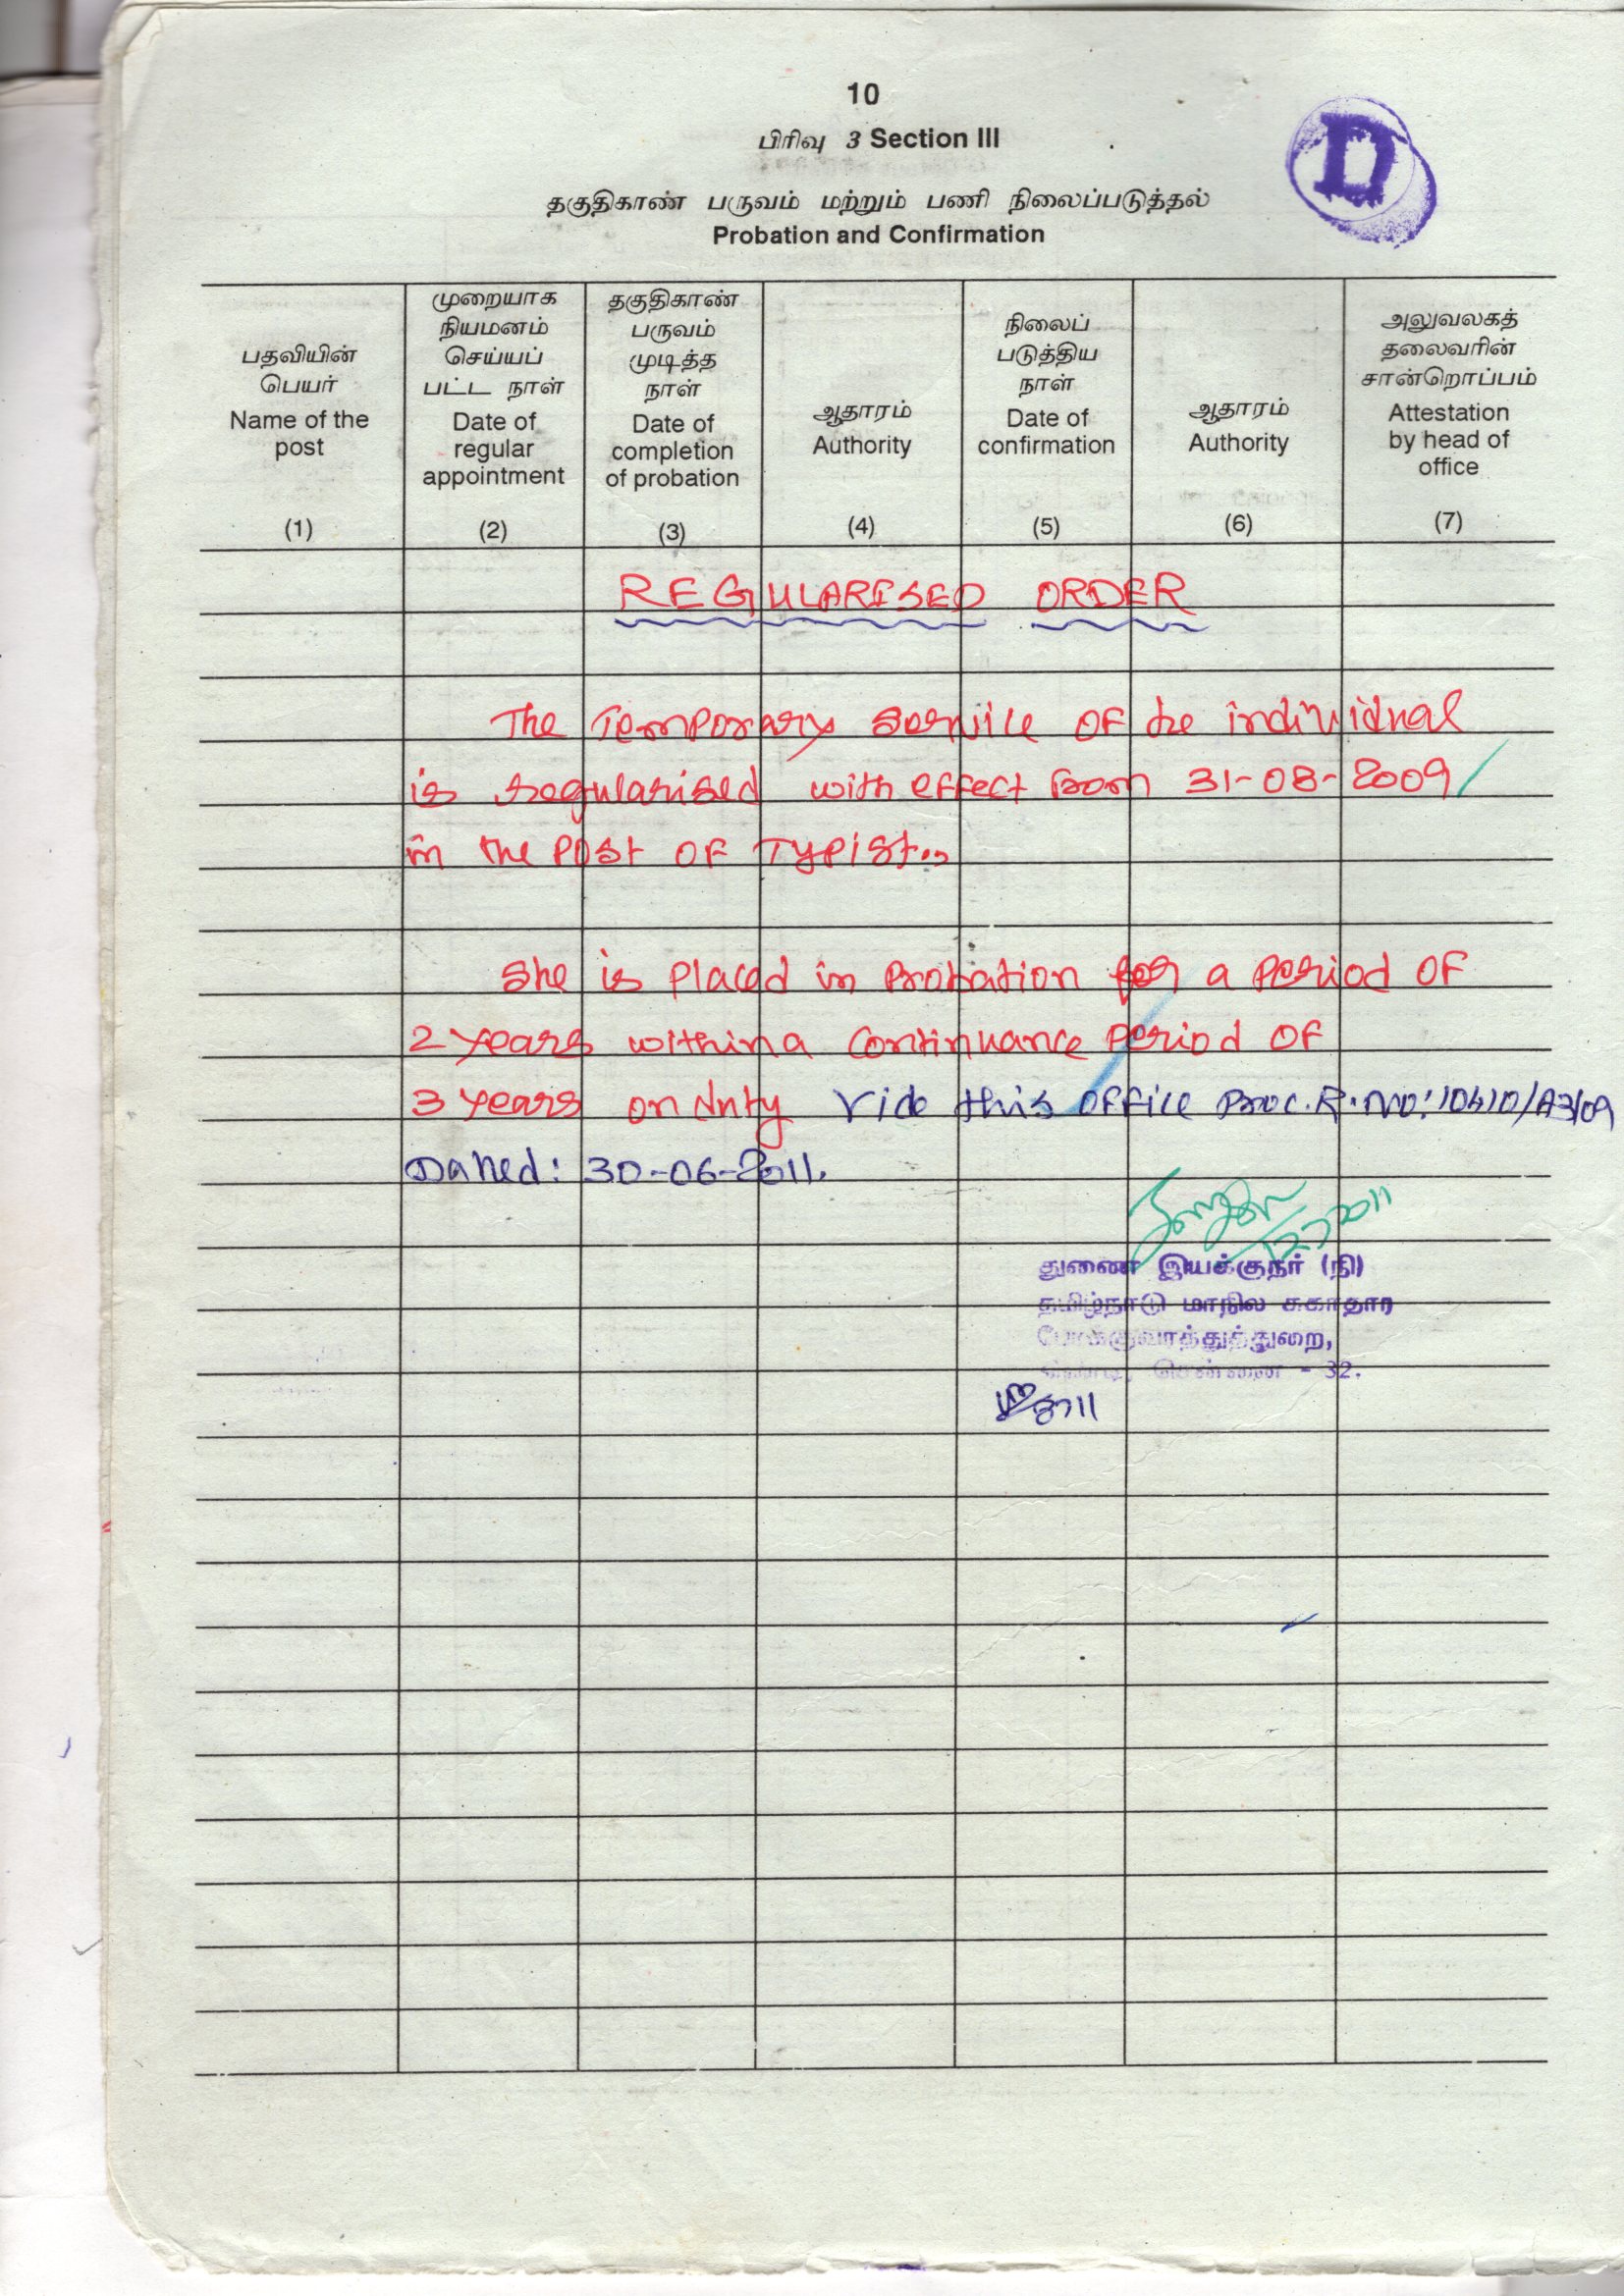 10
D
பிரிவு 3 Section III
தகுதிகாண் பருவம் மற்றும் பணி நிலைப்படுத்தல்
Probation and Confirmation
பதவியின்
பெயர்
Name of the
post
(1)
முறையாக
நியமனம்
செய்யப்
பட்ட நாள்
Date of
regular
appointment
(2)
தகுதிகாண்
பருவம்
முடித்த
நாள்
Date of
completion
of probation
(3)
ஆதாரம்
Authority
(4)
நிலைப்
படுத்திய
நாள்
Date of
confirmation
(5)
ஆதாரம்
Authority
(6)
அலுவலகத்
தலைவரின்
சான்றொப்பம்
Attestation
by head of
office
(7)
REGULARISED ORDER
The Temporary service of the individual
is regularised with effect from 31-08-2009
in the post of Typist.
She is placed in probation for a period of
2 years within a continuance period of
3 years on duty vide this office proc. R. No: 10410/A3/09
Dated: 30-06-2011.
துணை இயக்குநர் (நி)
தமிழ்நாடு மாநில சுகாதார
போக்குவரத்துத்துறை,
சென்னை - 32.